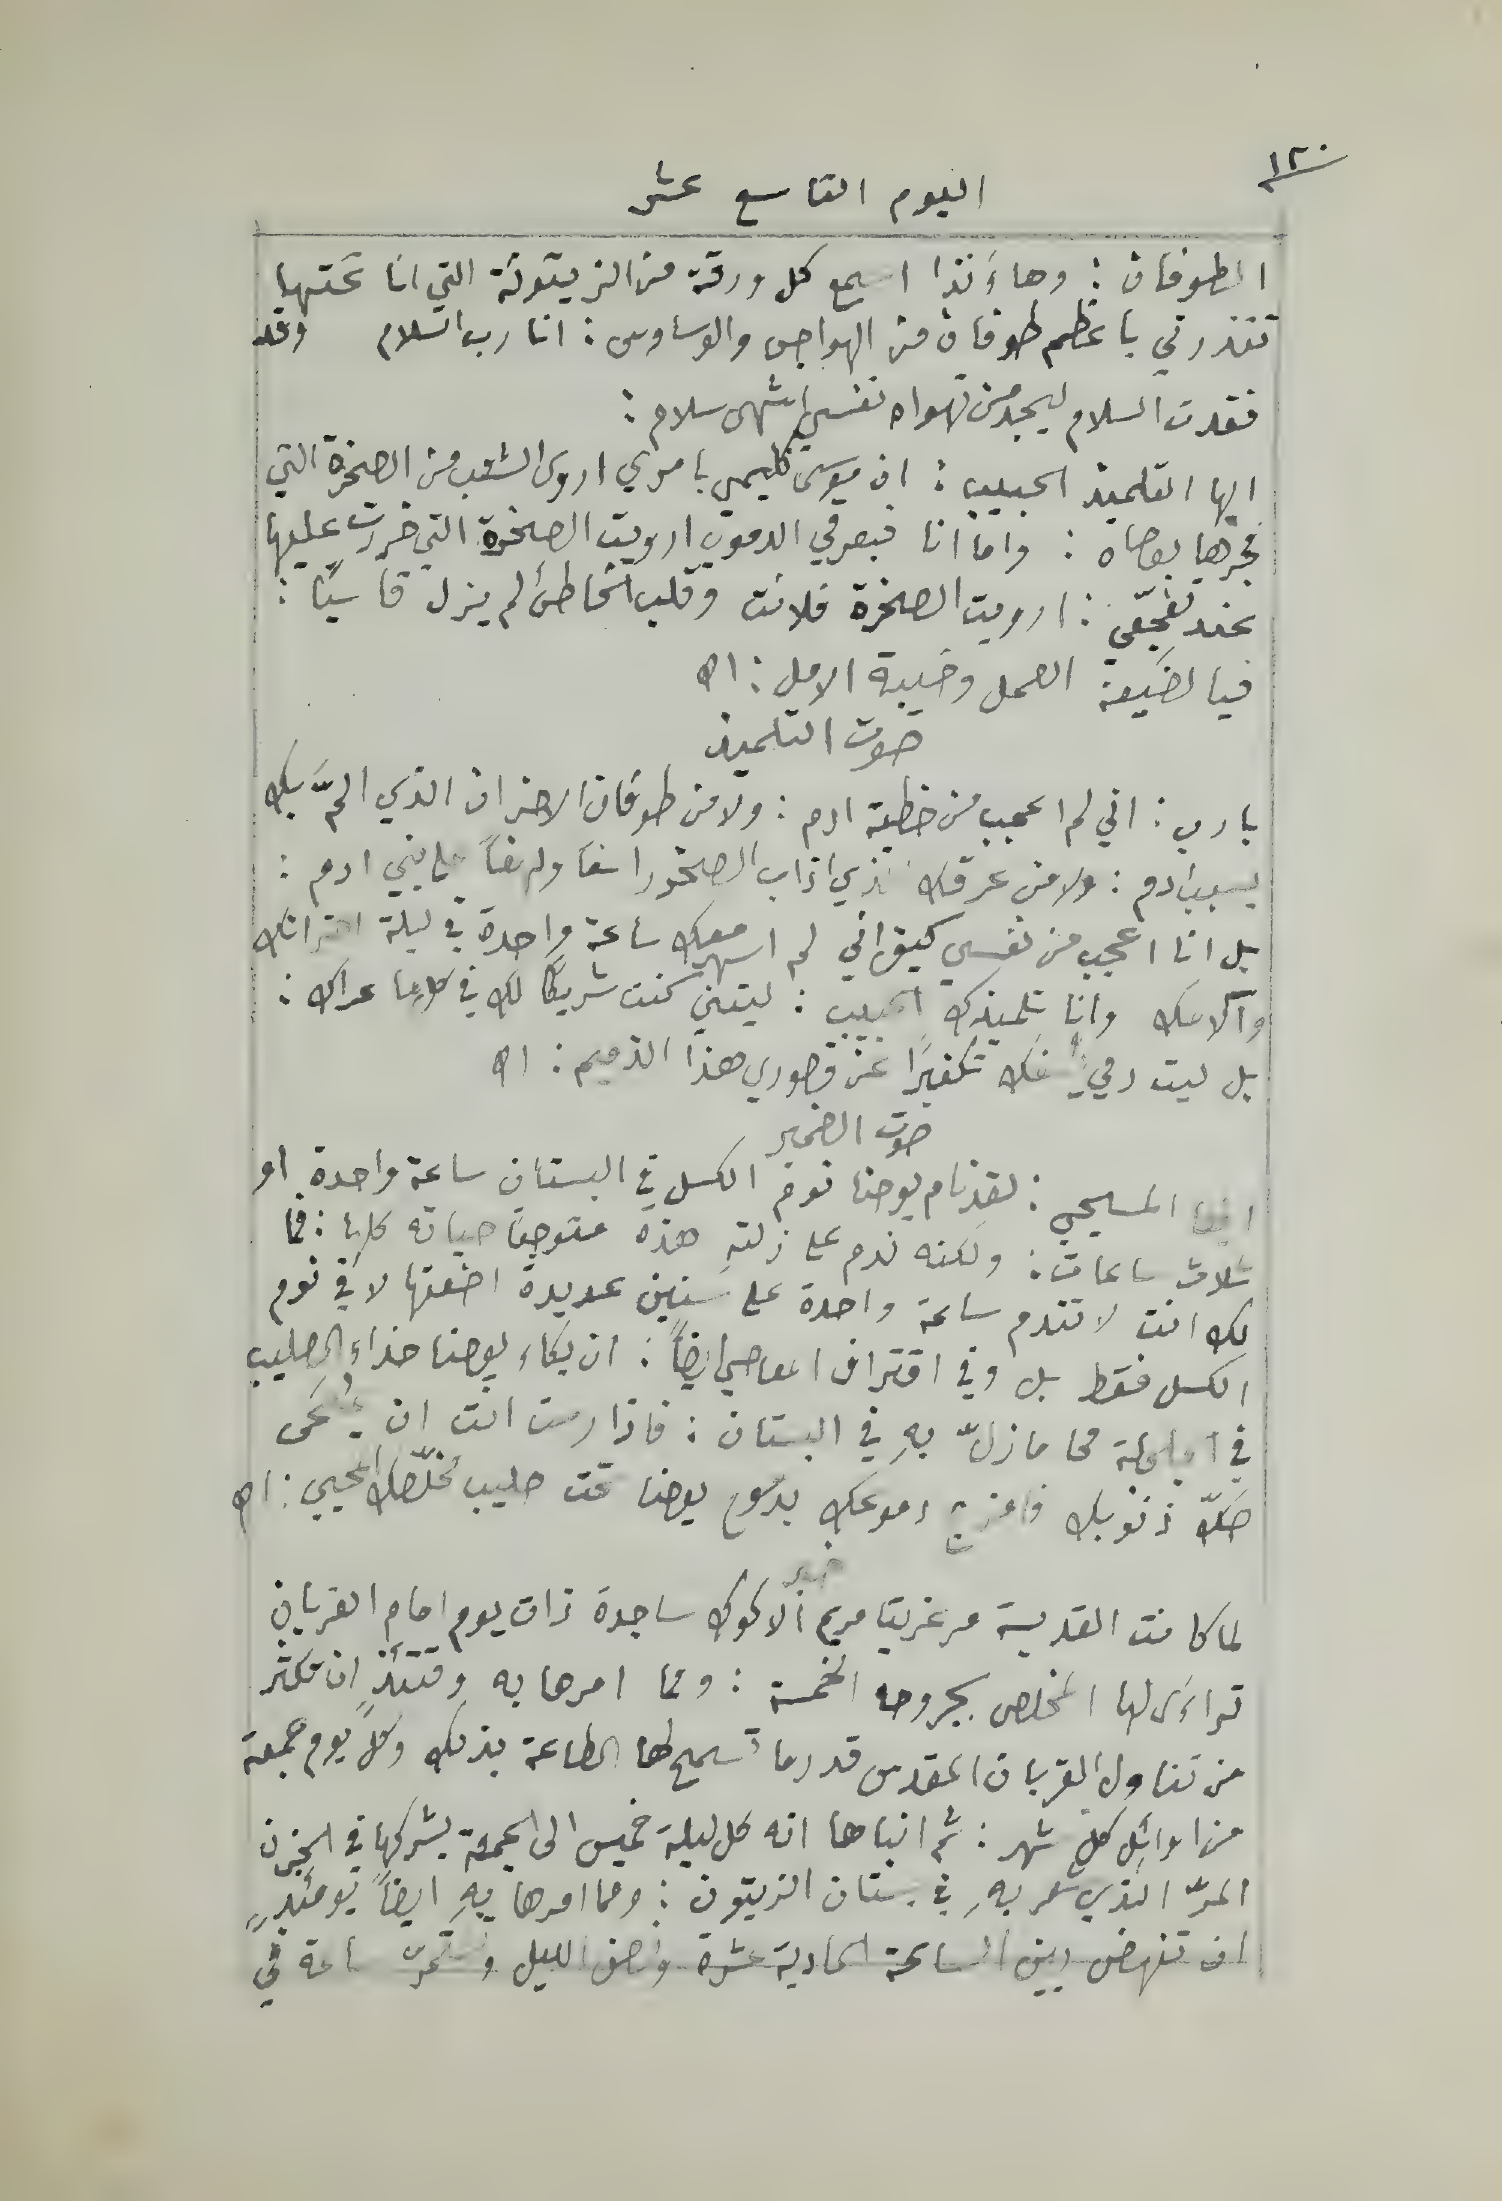 ١٢٠
اليوم التاسع عشر
الطوفان : وهاءَنذا اسمع كل ورقة من الزيتونة التي انا تحتها
تنذرني باعظم طوفان من الهواجس والوساوس : انا رب السلام وقد
فقدت السلام ليجد من تهواه نفسي اشهى سلام :
ايها التلميذ الحبيب : ان موسى كليمي بامري اروى الشعب من الصخرة التي
فجرها بعصاه : واما انا فبعرقي الدموي ارويت الصخرة التي خررت عليها
عند تفجّعي : ارويت الصخرة فلانت وقلب الخاطئ لم يزل قاسيًا :
فيا لضَيعة العمل وخيبة الامل : اھ
صوت التلميذ
يا رب : اني لم اعجب من خطية ادم : ولا من طوفان الاحزان الذي المَّ بك
بسبب ادم : ولا من عرقك الذي اذاب الصخور اسفا ولهفاً على بني ادم :
بل انا اعجب من نفسي كيف اني لم اسهر معك ساعة واحدة في ليلة احزانك
وآلامك وانا تلميذك الحبيب : ليتني كنت شريكًا لك في كل ما عراك :
بل ليت دمي يُسفك تكفيرًا عن قصوري هذا الذميم : اھ
صوت الضمير
ايها المسيحي : لقد نام يوحنا نوم الكسل في البستان ساعة واحدة او
ثلاث ساعات : ولكنه ندم على زلتهِ هذه متوجعًا حياته كلها : فما
لك انت لا تندم ساعة واحدة على سنين عديدة اضعتها لا في نوم
الكسل فقط بل وفي اقتراف المعاصي ايضاً : ان بكاء يوحنا حذاء الصليب
في الجلجلة محا ما زلَّ بهِ في البستان : فاذا رمت انت ان يُمحى
صَكّ ذنوبك فامزج دموعك بدموع يوحنا تحت صليب مخلّصك المحيي : اھ
خبر
لما كانت القديسة مرغريتا مريم ألاكوك ساجدة ذات يوم امام القربان
تراءَى لها المخلص بجروحه الخمسة : ومما امرها به وقتئذٍ ان تكثر
من تناول القربان المقدس قدر ما تسمح لها الطاعة بذلك وكلَّ يوم جمعة
من اوائل كل شهر : ثم انباها انه كل ليلة خميس الى الجمعة يشركها في الحزن
المرّ الذي شعر بهِ في بستان الزيتون : ومما امرها بهِ ايضاً يومئذٍ
ان تنهض بين الساعة الحادية عشرة ونصف الليل وتستمرّ ساعة في